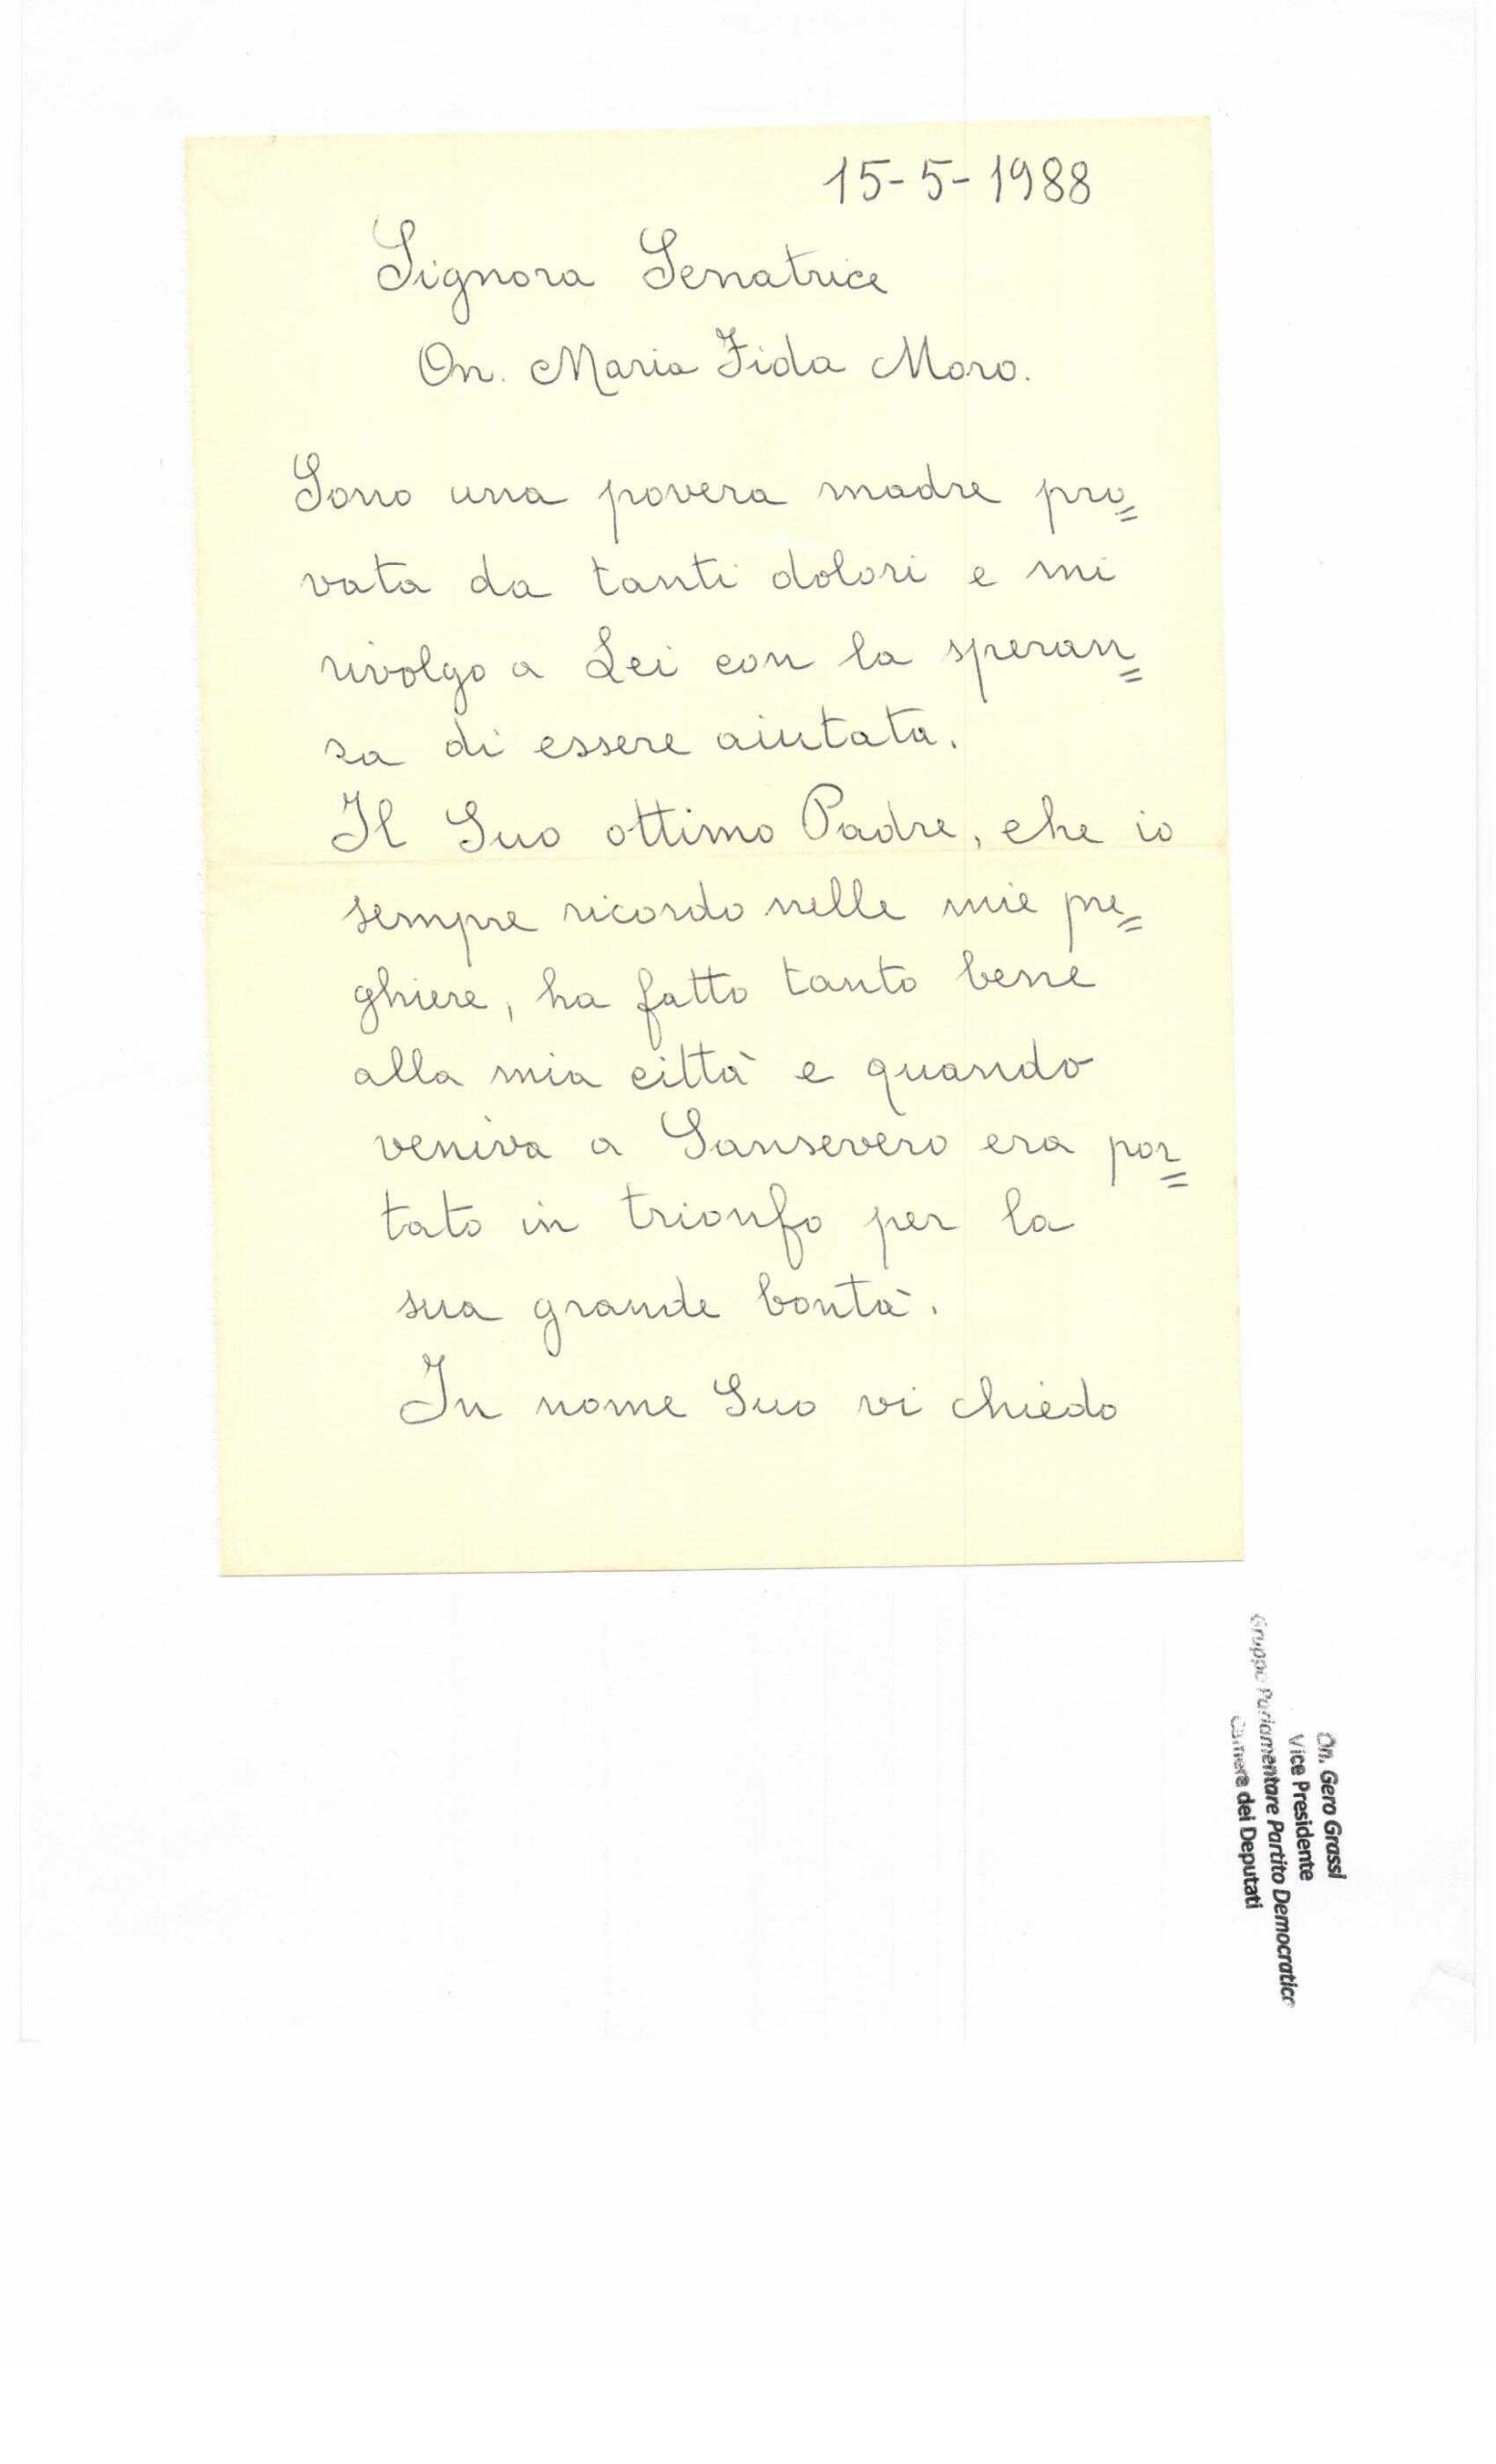 15-5-1988
Signora Senatrice
On. Maria Fida Moro.
Sono una povera madre pro=
vata da tanti dolori e mi
rivolgo a Lei con la speran=
za di essere aiutata.
Il Suo ottimo Padre, che io
sempre ricordo nelle mie pre=
ghiere, ha fatto tanto bene
alla mia città e quando
veniva a Sansevero era por=
tato in trionfo per la
sua grande bontà.
In nome Suo vi chiedo
On. Gero Grassi
Vice Presidente
Gruppo Parlamentare Partito Democratico
Camera dei Deputati